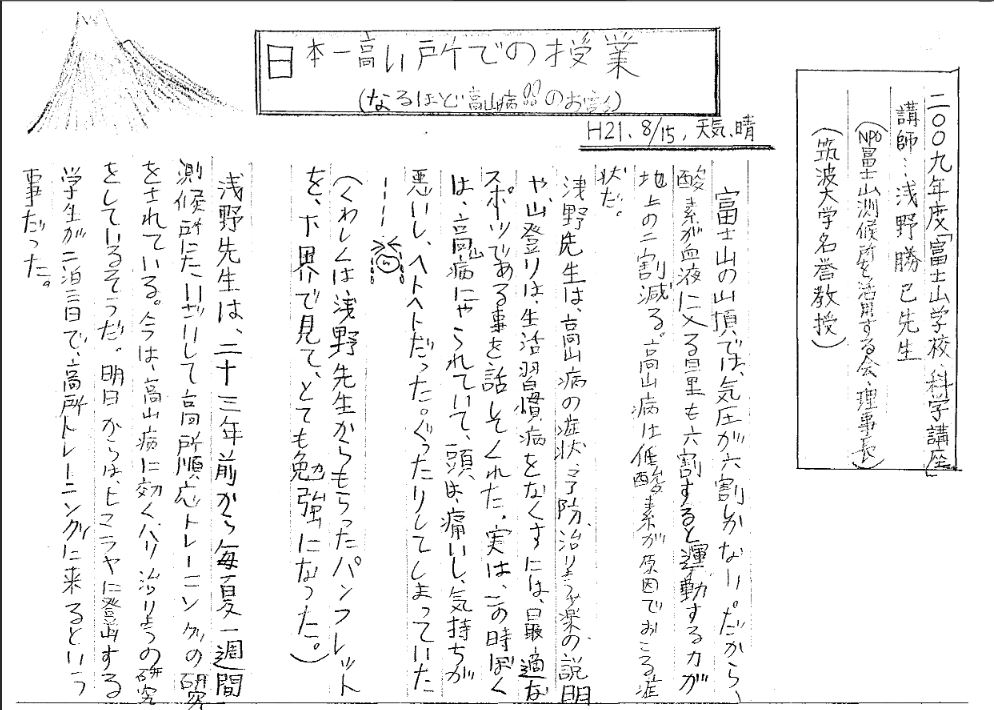 日本一高い所での授業
(なるほど高山病のお話)
H21. 8/15, 天気、晴
二〇〇九年度「富士山学校、科学講座」
講師…浅野勝己先生
(NPO富士山測候所を活用する会、理事長)
(筑波大学名誉教授)
富士山の山頂では、気圧が六割しかない。だから、
酸素が血液に入る量も六割すると運動する力が
地上の二割減る。高山病は低酸素が原因でおこる症
状だ。
浅野先生は、高山病の症状、予防、治りょう薬の説明
や、山登りは、生活習慣病をなくすには、最適な
スポーツである事を話してくれた。実は、この時ぼく
は、高山病にやられていて、頭は痛いし、気持ちが
悪いし、ヘトヘトだった。ぐったりしてしまっていた
(くわしくは浅野先生からもらったパンフレット
を、下界で見て、とても勉強になった。)
浅野先生は、二十三年前から毎夏一週間
測候所にたいざいして高所順応トレーニングの研究
をされている。今は、高山病に効くハリ治りょうの研究
をしているそうだ。明日からは、ヒマラヤに登山する
学生が二泊三日で、高所トレーニングに来るという
事だった。